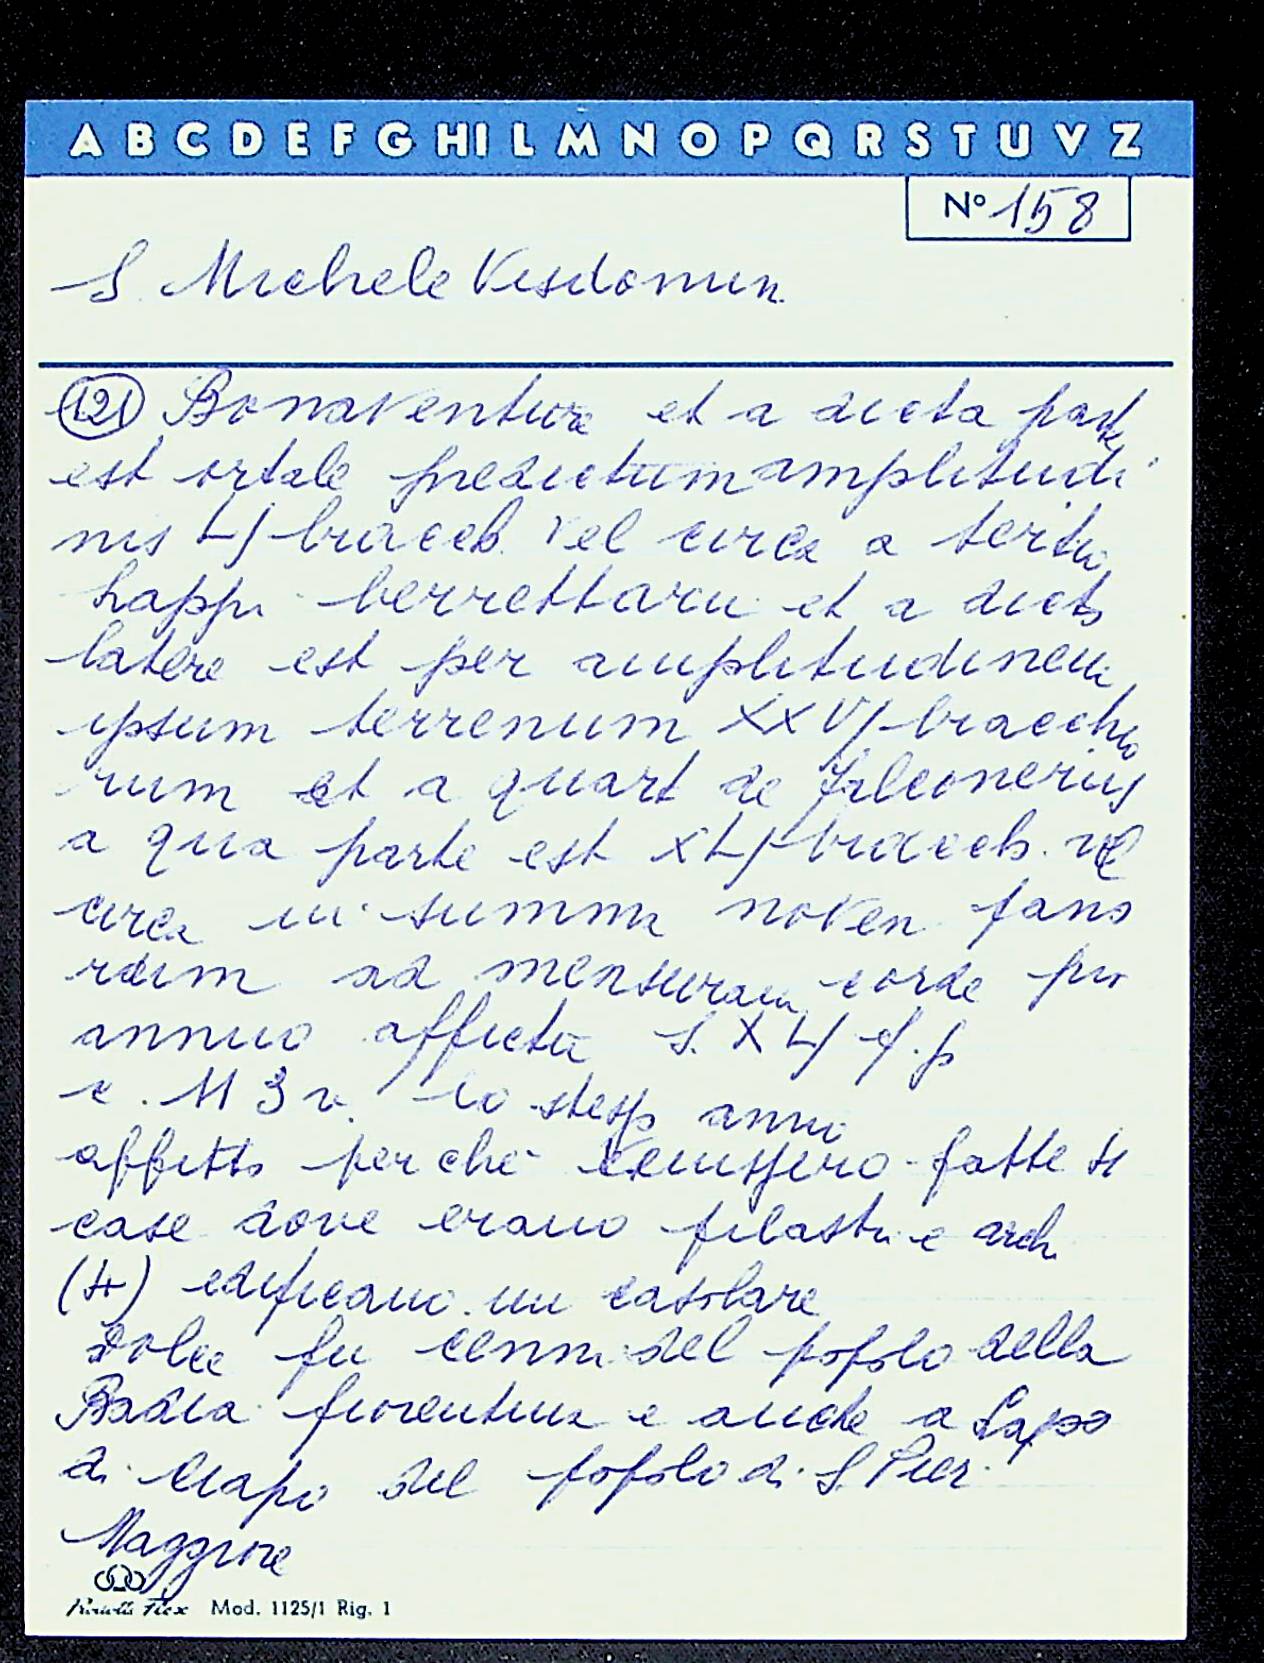 A B C D E F G H I L M N O P Q R S T U V Z
N° 158
S. Michele Visdomin.
(121) Bonaventure et a dicta parte
est ortale predictum amplitudi
nis L/ bracch. vel circa a tertio
Lappi berrettarii et a dicto
latere est per amplitudinem
ipsum terrenum XXV/ bracchio
rum et a quart de Falconeriis
a qua parte est XL/ bracch. vel
circa in summa noven pano
rum ad mensuram corde pro
annuo affictu S. XL/ f.p
c. 113 v. lo stesso anno
affitto perché venissero fatte 4
case dove erano pilastri e archi
(4) edificano un casolare
Dolce fu Cenni del popolo della
Badia fiorentina e anche a Lapo
di Ciapo del popolo di S. Pier
Maggiore
Flex Mod. 1125/1 Rig. 1